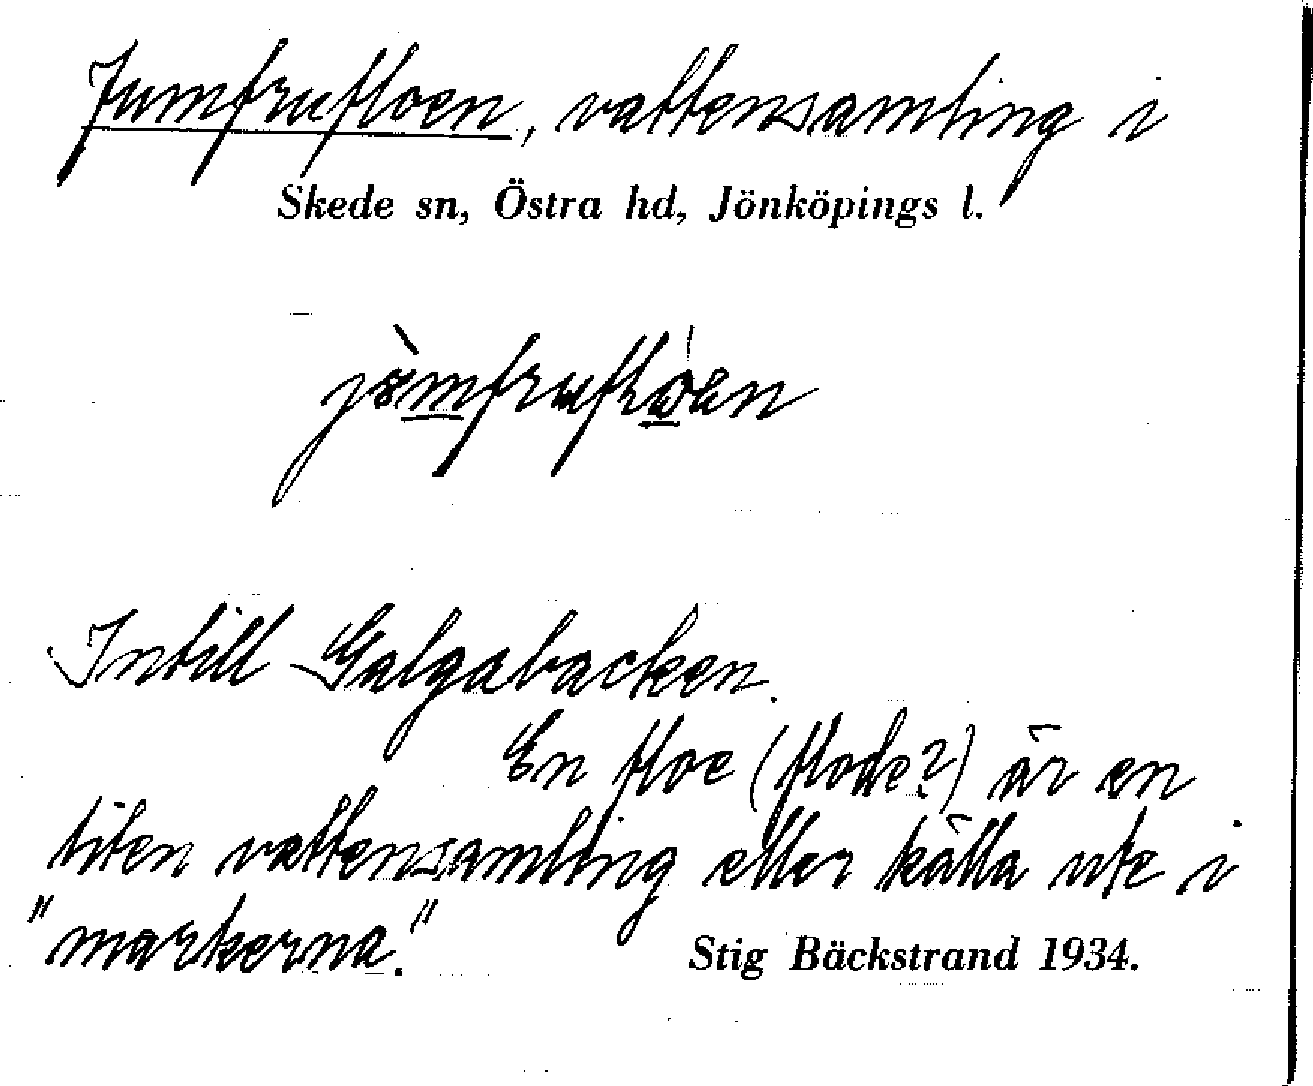 Jumfrufloen, vattensamling i
Skede sn, Östra hd, Jönköpings l.
Intill Galgabacken.
En floe (flode?) är en
liten vattensamling eller källa ute i
"markerna."
Stig Bäckstrand 1934.